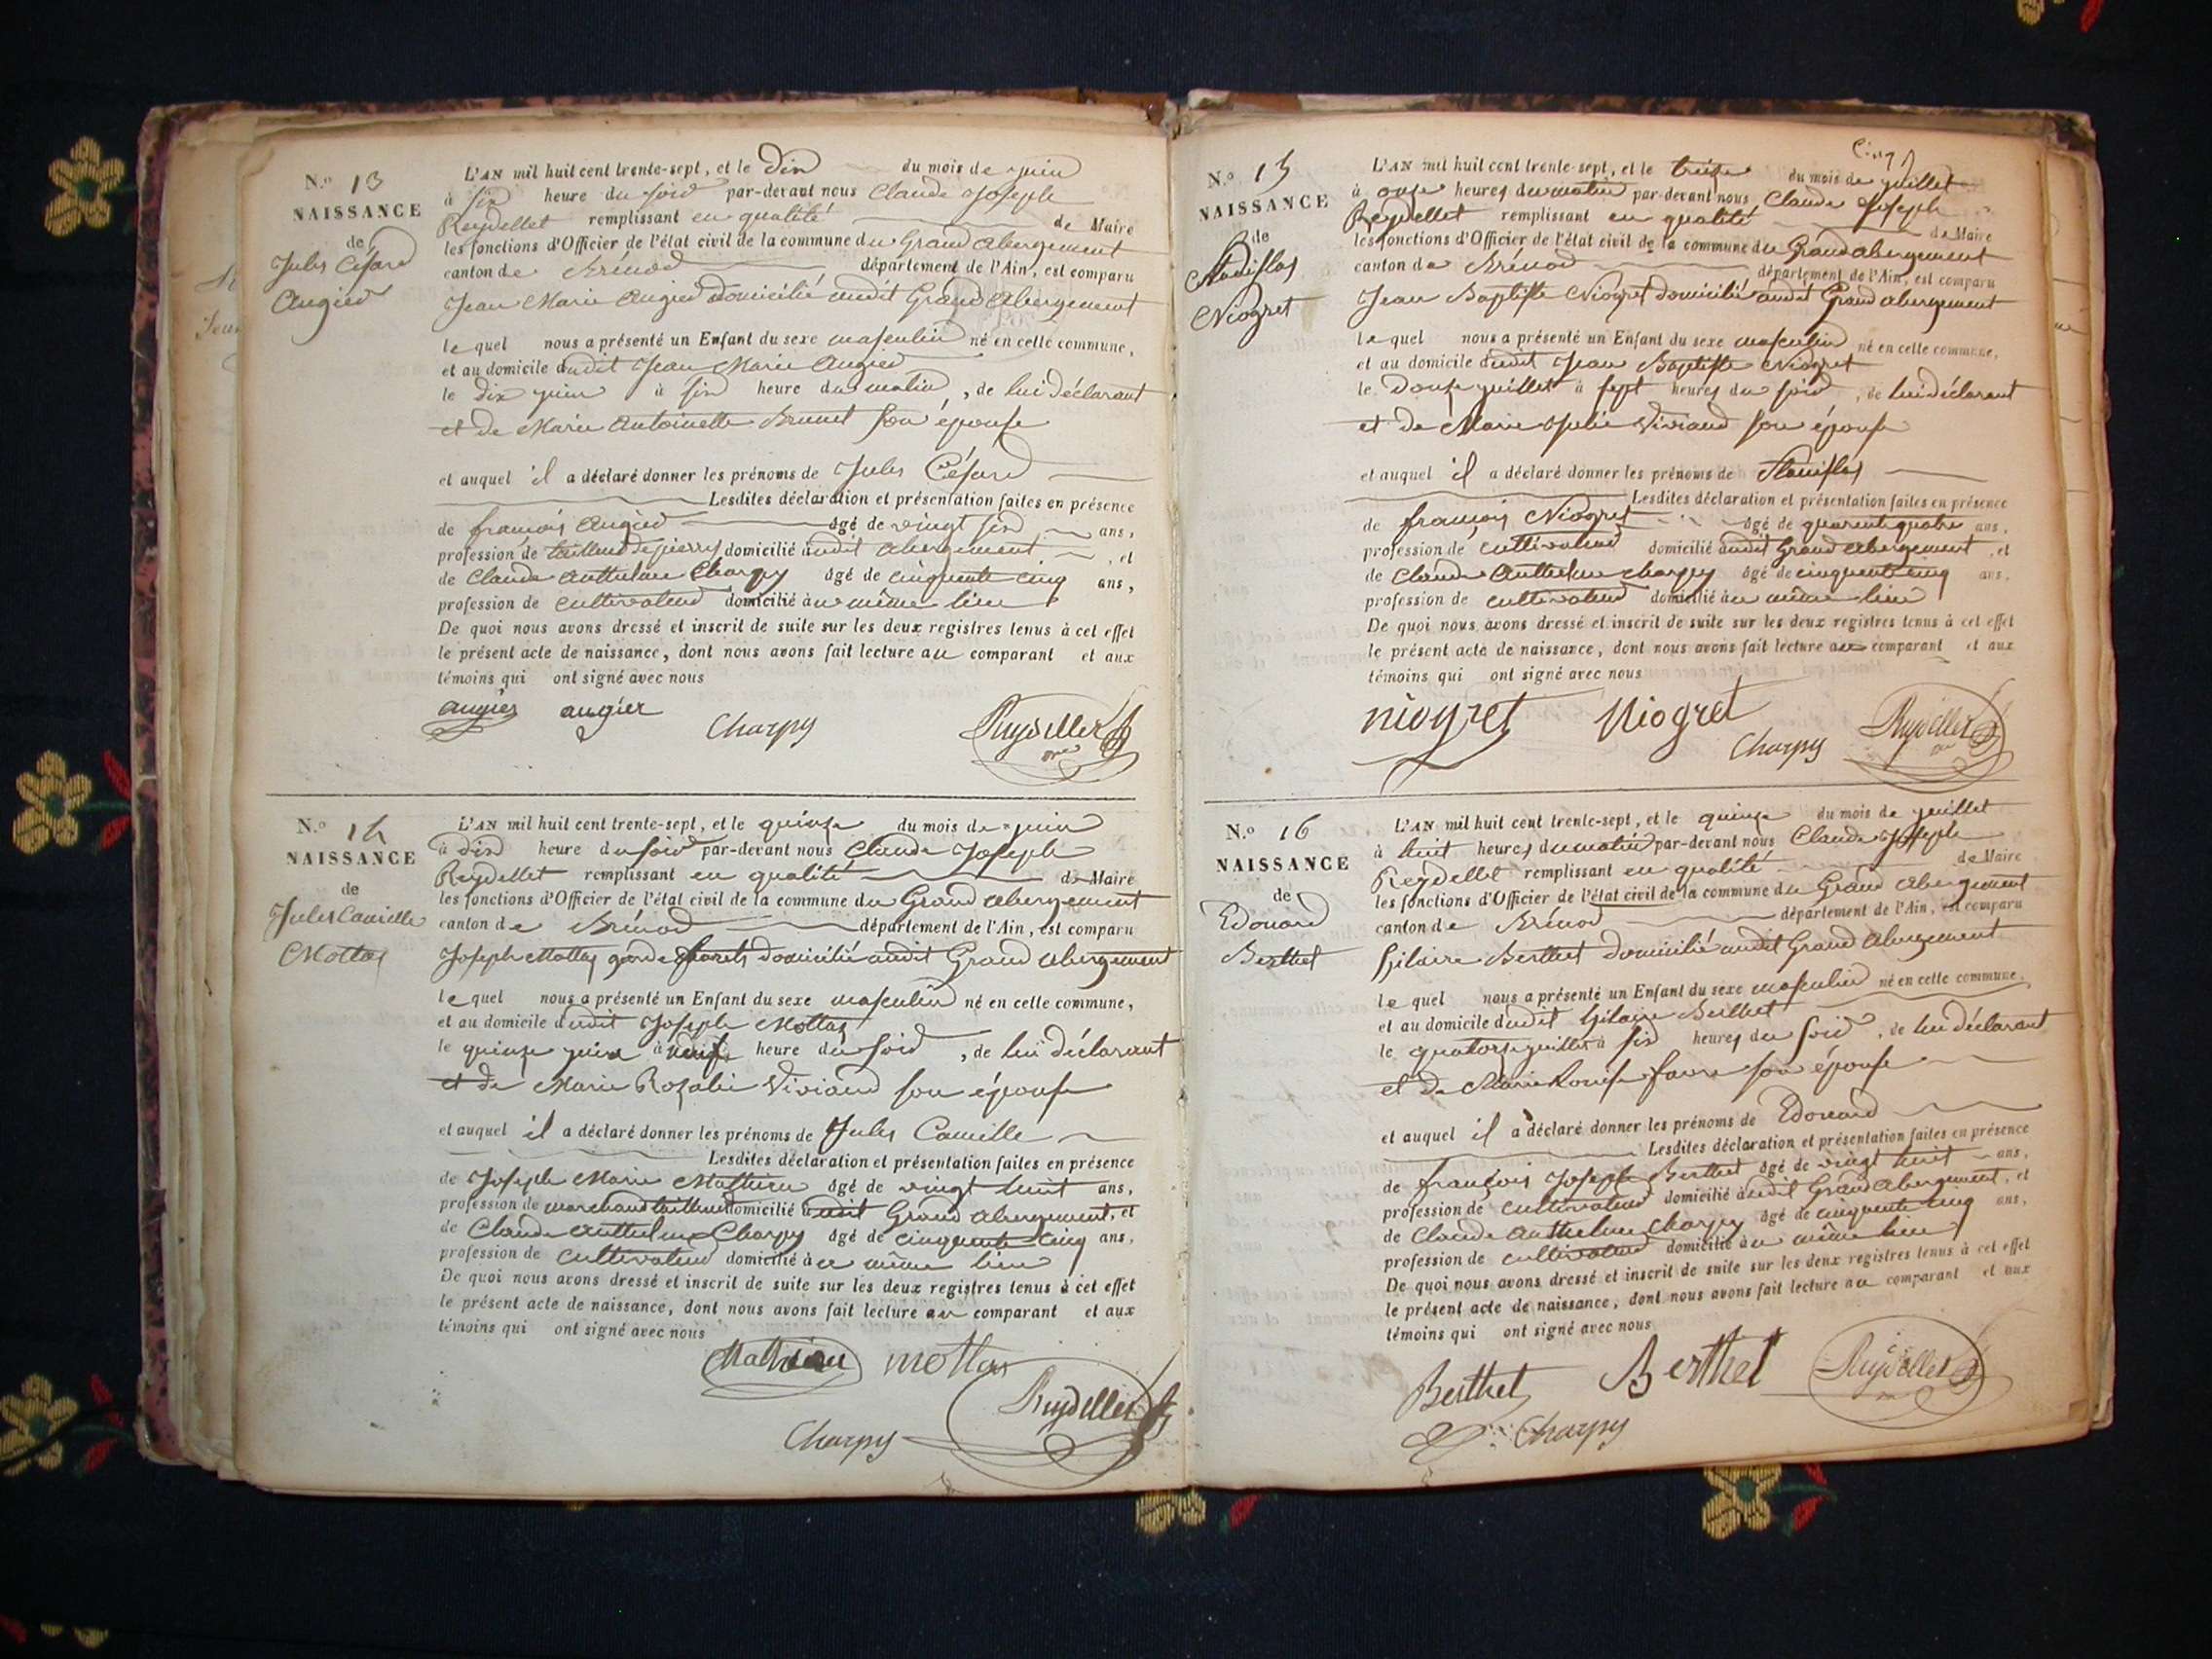 N.º 13
NAISSANCE
de
Jules César
Augier
L'AN mil huit cent trente-sept, et le dix du mois de juin
à six heure du soir par-devant nous Claude Joseph
Reydellet remplissant en qualité de Maire
les fonctions d'Officier de l'état civil de la commune du Grand abergement
canton de Brénod département de l'Ain, est comparu
Jean Marie Augier domicilié audit Grand Abergement
lequel nous a présenté un Enfant du sexe masculin né en cette commune,
et au domicile dudit Jean Marie Augier
le dix juin à six heure du matin, de lui déclarant
et de Marie Antoinette Brunet son épouse
et auquel il a déclaré donner les prénoms de Jules César
Lesdites déclaration et présentation faites en présence
de françois Augier âgé de vingt six ans,
profession de tailleur de pierres domicilié audit Abergement, et
de Claude Anthelme Charpy âgé de cinquante cinq ans,
profession de cultivateur domicilié au même lieu
De quoi nous avons dressé et inscrit de suite sur les deux registres tenus à cet effet
le présent acte de naissance, dont nous avons fait lecture au comparant et aux
témoins qui ont signé avec nous
augier augier Charpy Reydellet
N.º 14
NAISSANCE
de
Jules Camille
Mottas
L'AN mil huit cent trente-sept, et le quinze du mois de juin
à dix heure du soir par-devant nous Claude Joseph
Reydellet remplissant en qualité de Maire
les fonctions d'Officier de l'état civil de la commune du Grand abergement
canton de Brénod département de l'Ain, est comparu
Joseph Mottas garde forets domicilié audit Grand abergement
lequel nous a présenté un Enfant du sexe masculin né en cette commune,
et au domicile dudit Joseph Mottas
le quinze juin à neuf heure du soir, de lui déclarant
et de Marie Rozalie Viviand son épouse
et auquel il a déclaré donner les prénoms de Jules Camille
Lesdites déclaration et présentation faites en présence
de Joseph Marie Mathieu âgé de vingt huit ans,
profession de marchand tailleur domicilié audit Grand abergement, et
de Claude Anthelme Charpy âgé de cinquante cinq ans,
profession de cultivateur domicilié au même lieu
De quoi nous avons dressé et inscrit de suite sur les deux registres tenus à cet effet
le présent acte de naissance, dont nous avons fait lecture au comparant et aux
témoins qui ont signé avec nous
Mathieu mottas
Charpy Reydellet
Cinq
N.º 15
NAISSANCE
de
Stanislas
Niogret
L'AN mil huit cent trente-sept, et le treize du mois de juillet
à onze heures du matin par-devant nous Claude Joseph
Reydellet remplissant en qualité de Maire
les fonctions d'Officier de l'état civil de la commune du Grand abergement
canton de Brénod département de l'Ain, est comparu
Jean Baptiste Niogret domicilié audit Grand abergement
lequel nous a présenté un Enfant du sexe masculin né en cette commune,
et au domicile dudit Jean Baptiste Niogret
le douze juillet à sept heures du soir, de lui déclarant
et de Marie Julie Viviand son épouse
et auquel il a déclaré donner les prénoms de Stanislas
Lesdites déclaration et présentation faites en présence
de françois Niogret âgé de quarente quatre ans,
profession de cultivateur domicilié audit Grand abergement, et
de Claude Anthelme Charpy âgé de cinquante cinq ans,
profession de cultivateur domicilié au même lieu
De quoi nous avons dressé et inscrit de suite sur les deux registres tenus à cet effet
le présent acte de naissance, dont nous avons fait lecture au comparant et aux
témoins qui ont signé avec nous
niogret Niogret Charpy Reydellet
N.º 16
NAISSANCE
de
Edouard
Berthet
L'AN mil huit cent trente-sept, et le quinze du mois de juillet
à huit heures du matin par-devant nous Claude Joseph
Reydellet remplissant en qualité de Maire
les fonctions d'Officier de l'état civil de la commune du Grand abergement
canton de Brénod département de l'Ain, est comparu
hilaire Berthet domicilié audit Grand Abergement
lequel nous a présenté un Enfant du sexe masculin né en cette commune,
et au domicile dudit hilaire Berthet
le quatorze juillet à six heures du soir, de lui déclarant
et de Marie Louise favre son épouse
et auquel il a déclaré donner les prénoms de Edouard
Lesdites déclaration et présentation faites en présence
de françois Joseph Berthet âgé de vingt huit ans,
profession de cultivateur domicilié audit Grand abergement, et
de Claude Anthelme Charpy âgé de cinquante cinq ans,
profession de cultivateur domicilié au même lieu
De quoi nous avons dressé et inscrit de suite sur les deux registres tenus à cet effet
le présent acte de naissance, dont nous avons fait lecture au comparant et aux
témoins qui ont signé avec nous
Berthet Berthet Reydellet
Charpy